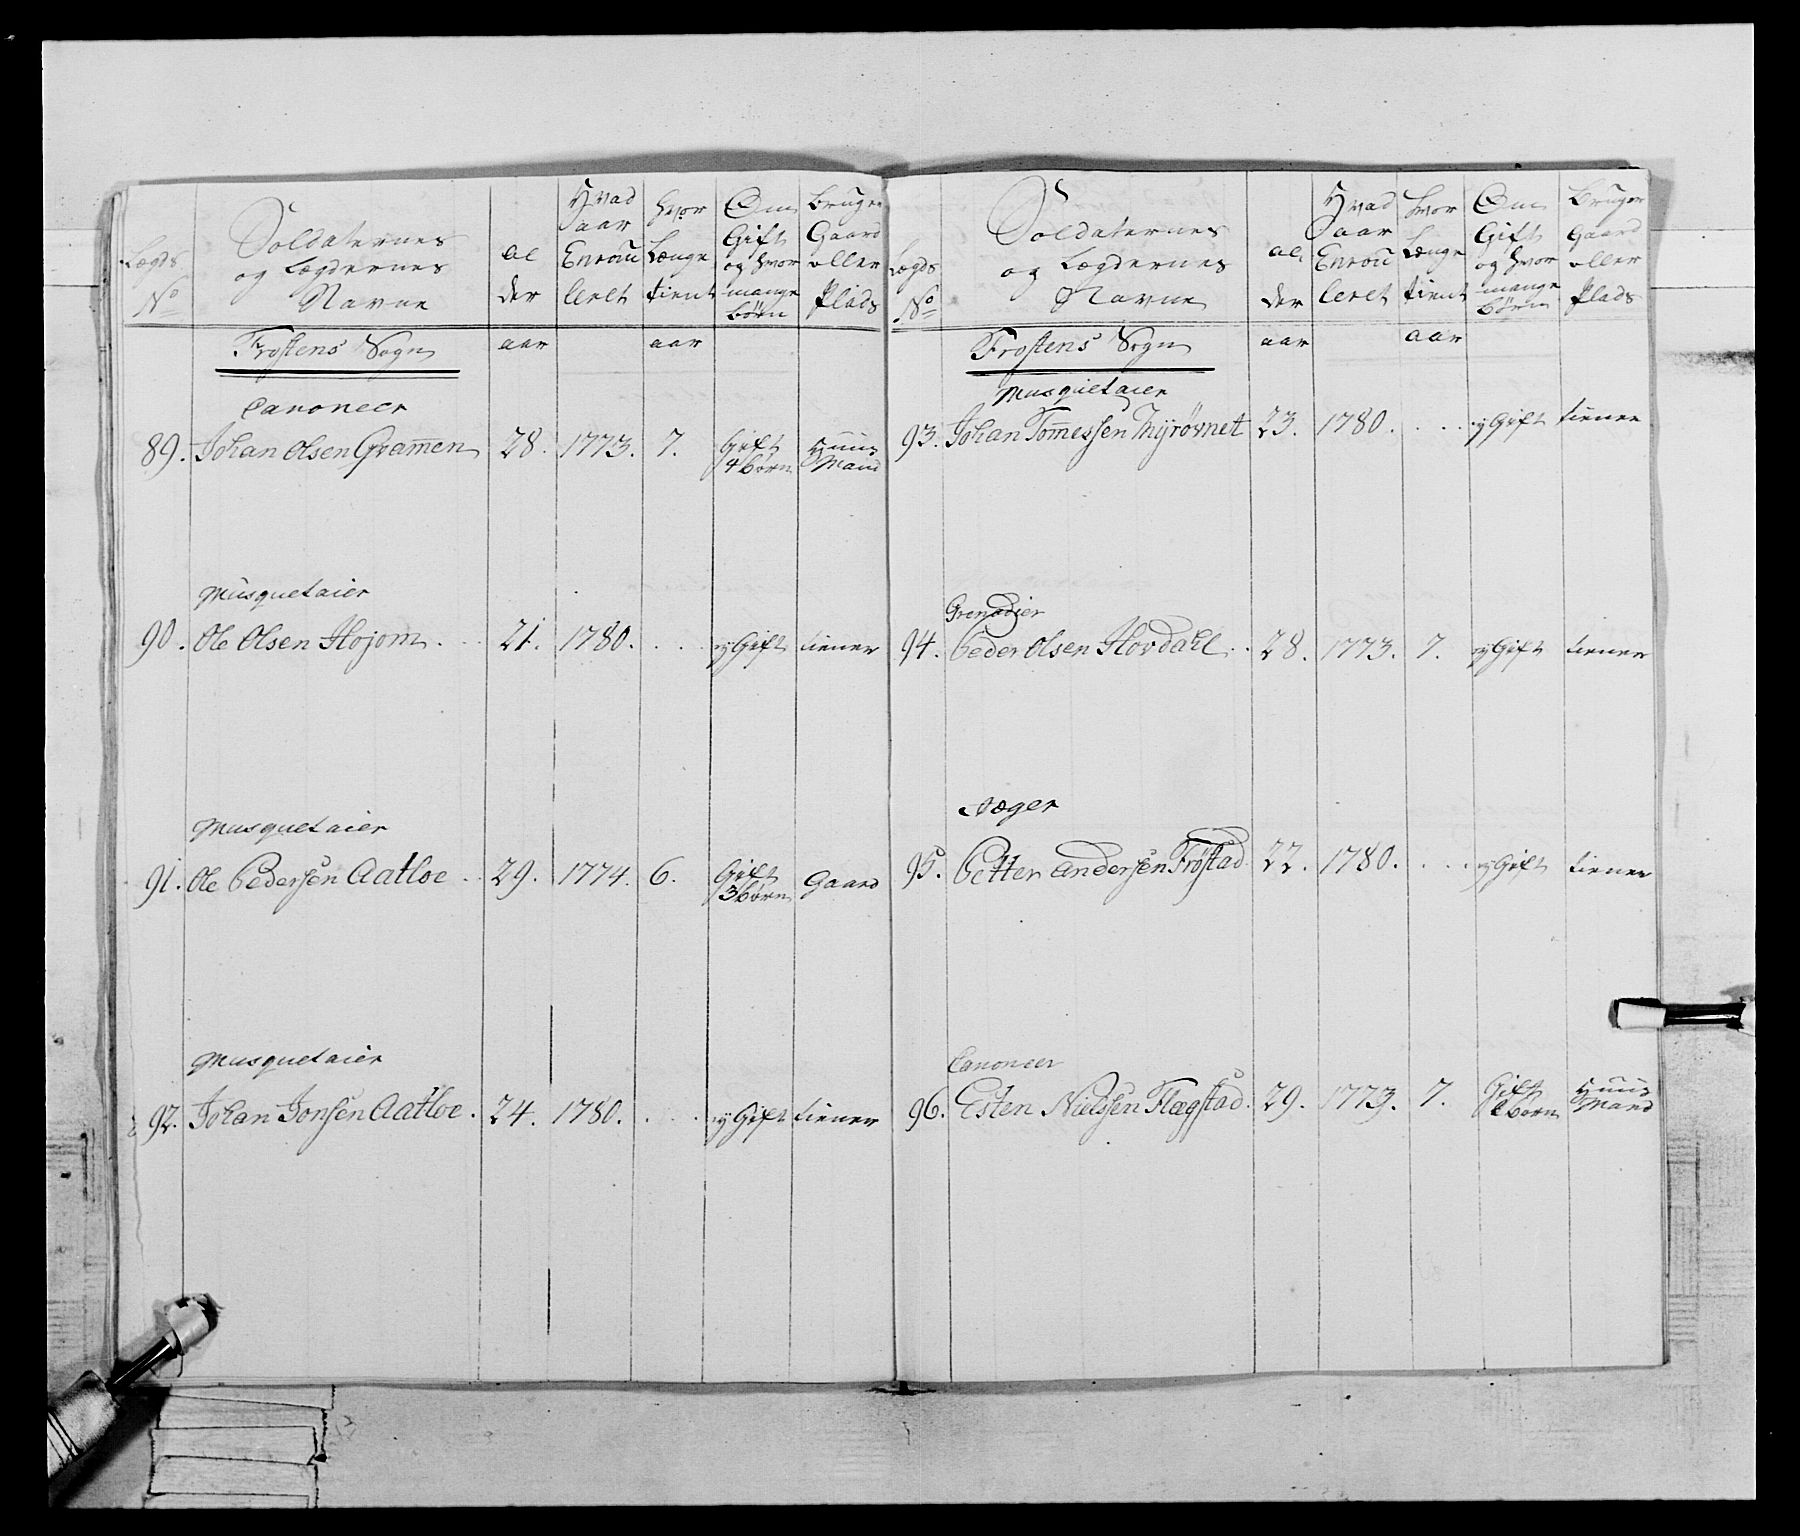 Lægds No
Soldaternes og Lægdernes Navne
al der
Hvad aar Enroulleret
Hvor Længe tient
Om Gift og hvor mange børn
Bruger Gaard eller Plads
Frostens Sogn aar aar
Canoneer
89. Johan Olsen Gramen 28. 1773. 7. Gift 4 børn Huus Mand
Musquetaier
90. Ole Olsen Hojom 21. 1780. . . . ugift tiener
Musquetaier
91. Ole Pedersen Aatloe 29. 1774. 6. Gift 3 børn Gaard
Musquetaier
92. Johan Jonsen Aatloe. 24. 1780. . . . ugift tiener
Lægds No
Soldaternes og Lægdernes Navne
al der
Hvad aar Enroulleret
hvor Længe tient
Om Gift og hvor mange børn
Bruger Gaard eller Plads
Frostens Sogn aar aar
Musquetaier
93. Johan Tom̅essen 23. 1780. . . . ugift tiener
Grenadier
94. Peder Olsen Hovdahl . . 28. 1773. 7. ugift tiener
Jæger
95. Petter Andersen Frøstad 22. 1780. . . . ugift tiener
Canoneer
96. Esten Nielssen Flægstad. 29. 1773. 7. Gift børn Huus Mand